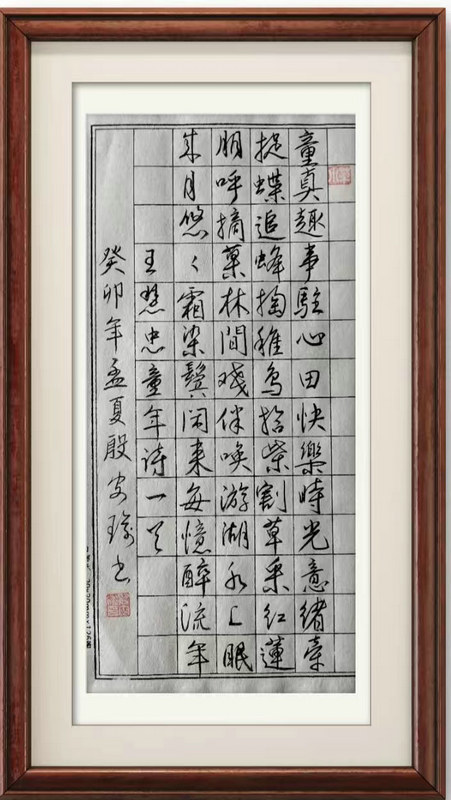 童真趣事駐心田快樂時光意緒牽
捉蝶追蜂掏稚鳥拾柴割草采紅蓮
朋呼摘菓林間戏伴唤游湖水上眠
歲月悠々霜染鬓闲来每憶醉流年
王慧忠童年诗一首
癸卯年孟夏殷安瑜书